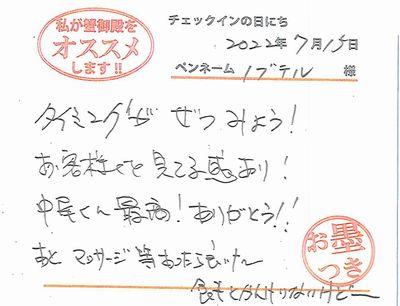 私が蟹御殿を
オススメ
します!!
チェックインの日にち
2022年7月15日
ペンネーム ノブテル 様
タイミングが ぜつみょう!
お客様を見てる感あり!
中尾くん 最高! ありがとう!!
あと マッサージ 等あったら良いナ〜
お墨
つき